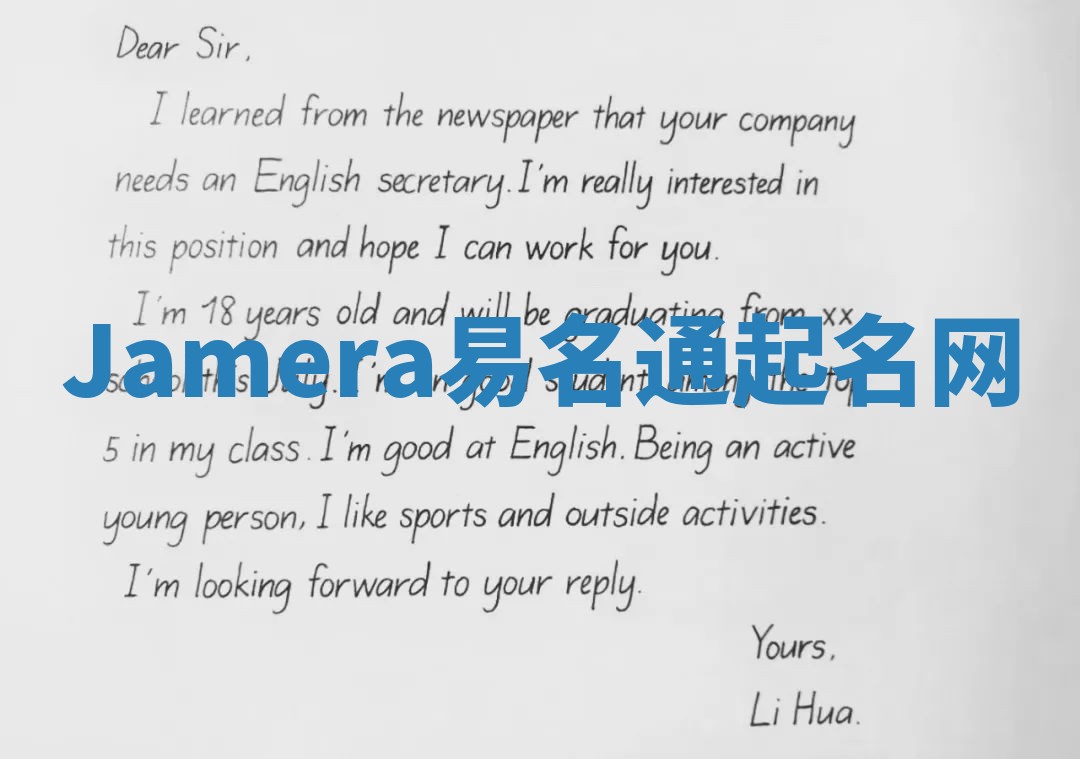 Dear Sir,
I learned from the newspaper that your company
needs an English secretary. I'm really interested in
this position and hope I can work for you.
I'm 18 years old and will be graduating from xx
Jamera易名通起名网
school this July. I'm a good student among the top
5 in my class. I'm good at English. Being an active
young person, I like sports and outside activities.
I'm looking forward to your reply.
Yours,
Li Hua.